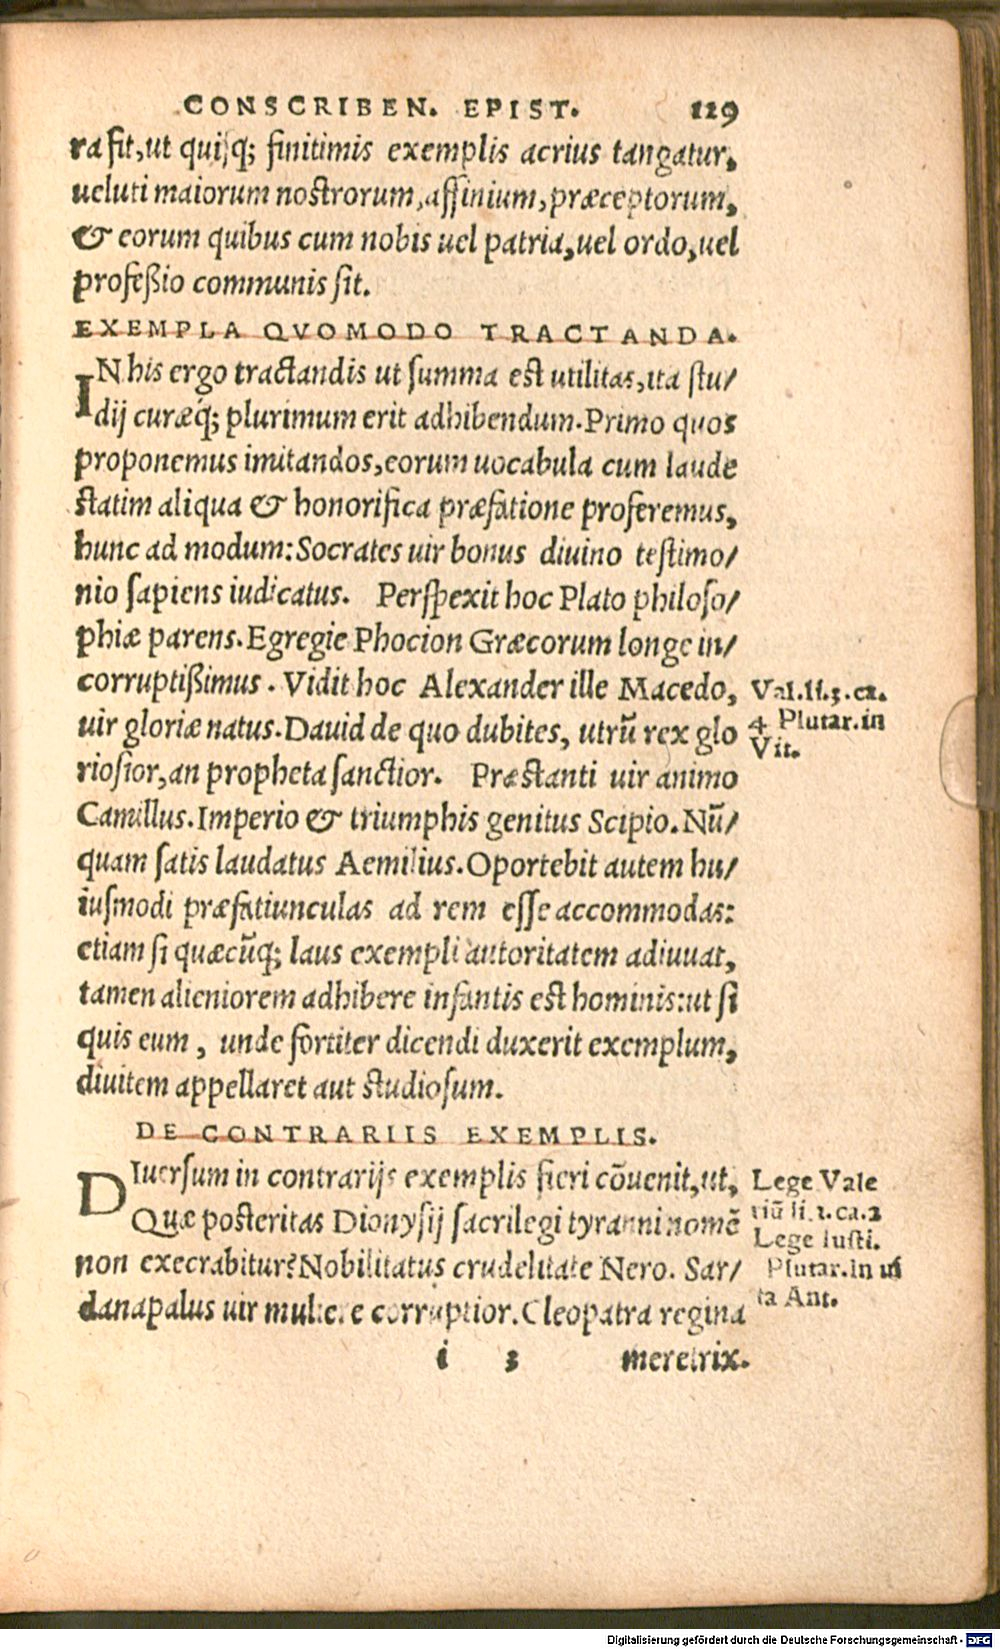 CONSCRIBEN. EPIST. 119
ra sit, ut quisq; finitimis exemplis acrius tangatur,
ueluti maiorum nostrorum, affinium, præceptorum,
& eorum quibus cum nobis uel patria, uel ordo, uel
profeßio communis sit.
EXEMPLA QVOMODO TRACTANDA.
IN his ergo tractandis ut summa est utilitas, ita stu/
dij curæq; plurimum erit adhibendum. Primo quos
proponemus imitandos, eorum uocabula cum laude
statim aliqua & honorifica præfatione proferemus,
hunc ad modum: Socrates uir bonus diuino testimo/
nio sapiens iudicatus. Perspexit hoc Plato philoso/
phiæ parens. Egregie Phocion Græcorum longe in/
corruptißimus. Vidit hoc Alexander ille Macedo,
uir gloriæ natus. Dauid de quo dubites, utrũ rex glo
riosior, an propheta sanctior. Præstanti uir animo
Camillus. Imperio & triumphis genitus Scipio. Nũ/
quam satis laudatus Aemilius. Oportebit autem hu/
iusmodi præfatiunculas ad rem esse accommodas:
etiam si quæcũq; laus exempli autoritatem adiuuat,
tamen alieniorem adhibere infantis est hominis: ut si
quis eum, unde fortiter dicendi duxerit exemplum,
diuitem appellaret aut studiosum.
Val. li. 3. ca.
4 Plutar. in
Vit.
DE CONTRARIIS EXEMPLIS.
DIuersum in contrarijs exemplis fieri cõuenit, ut,
Quæ posteritas Dionysij sacrilegi tyranni nomẽ
non execrabitur? Nobilitatus crudelitate Nero. Sar/
danapalus uir muliere corruptior. Cleopatra regina
Lege Vale
riũ li. 1. ca. 2
Lege Iusti.
Plutar. in ui
ta Ant.
i 3 meretrix.
Digitalisierung gefördert durch die Deutsche Forschungsgemeinschaft - DFG